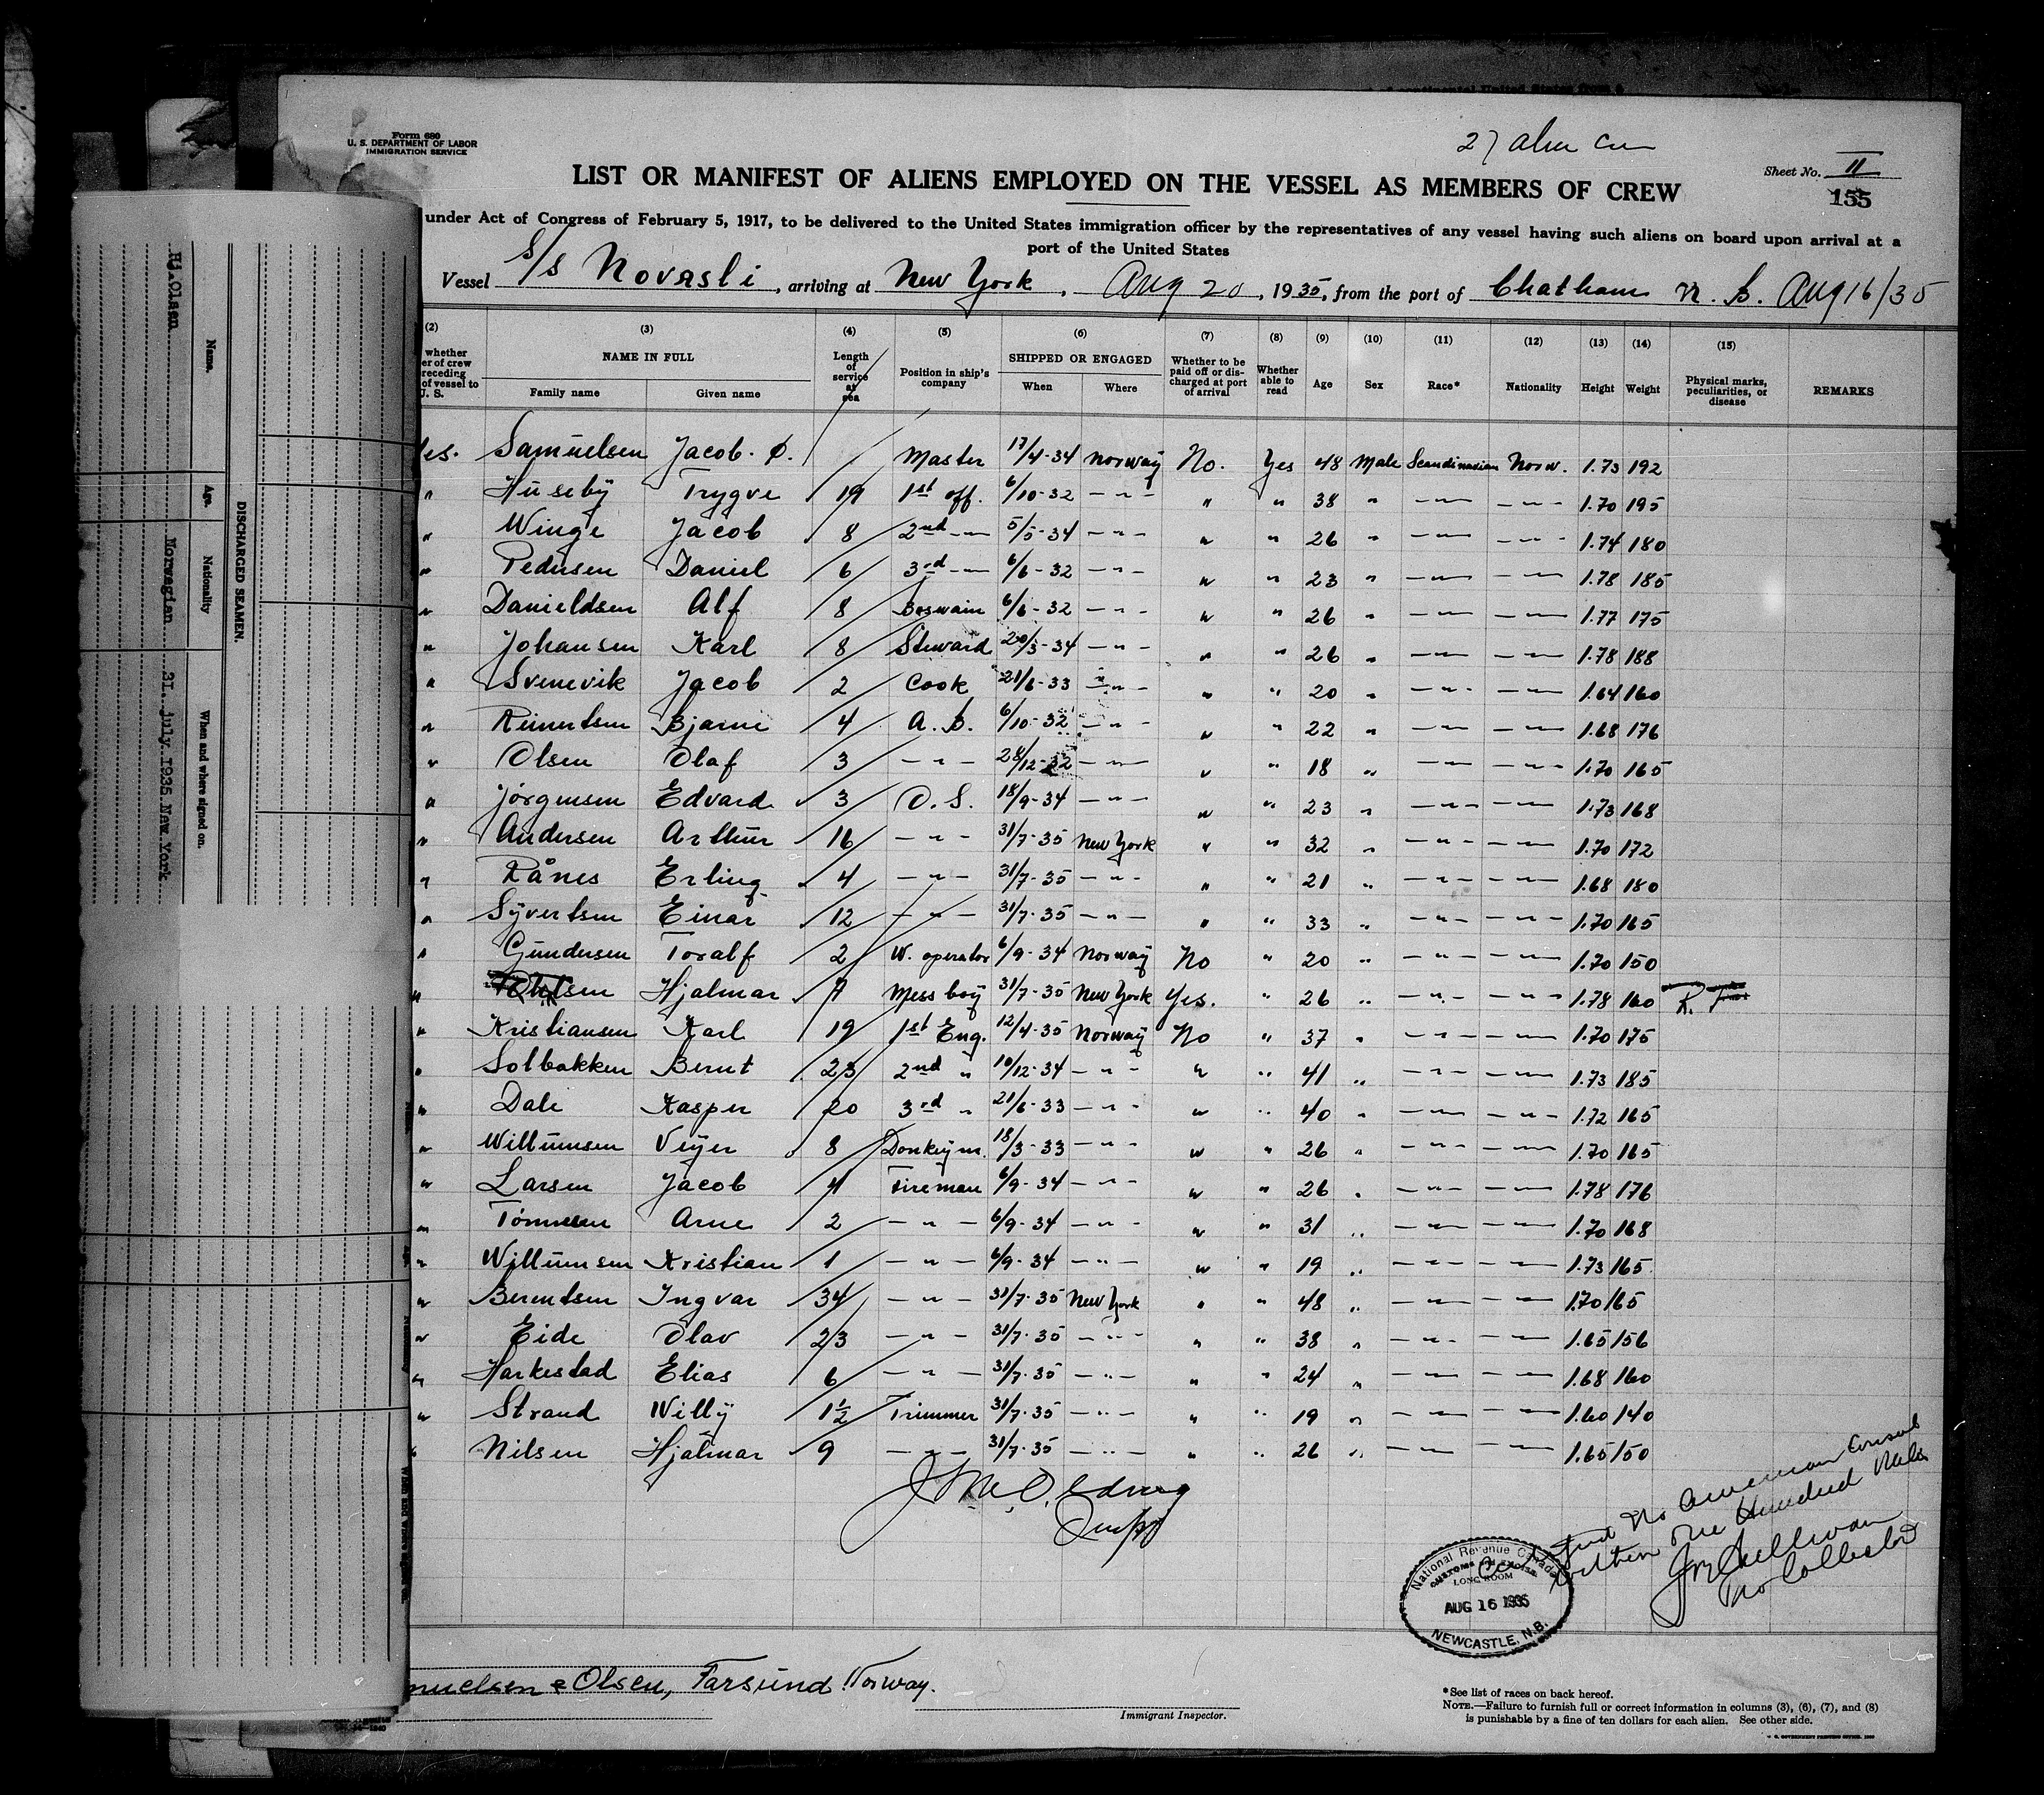 Form 680
U. S. DEPARTMENT OF LABOR
IMMIGRATION SERVICE
27 alien
LIST OR MANIFEST OF ALIENS EMPLOYED ON THE VESSEL AS MEMBERS OF CREW
Sheet No. II
155
under Act of Congress of February 5, 1917, to be delivered to the United States immigration officer by the representatives of any vessel having such aliens on board upon arrival at a
port of the United States
Vessel S/S Novasli, arriving at New York, Aug 20, 1935, from the port of Chatham N. B. Aug 16/35
(2) (3) (4) (5) (6) (7) (8) (9) (10) (11) (12) (13) (14) (15)
whether
er of crew
receding
of vessel to
J. S.
NAME IN FULL
Family name Given name
Length of service at sea
Position in ship's company
SHIPPED OR ENGAGED
When Where
Whether to be paid off or discharged at port of arrival
Whether able to read
Age Sex Race* Nationality Height Weight
Physical marks, peculiarities, or disease
REMARKS
es. Samuelsen Jacob. Ø. Master 17/4-34 Norway No. Yes 48 Male Scandinavian Norw. 1.73 192
" Huseby Trygve 19 1st off. 6/10-32 — " — " " 38 " — " — — " — 1.70 195
" Winge Jacob 8 2nd — " — 5/5-34 — " — " " 26 " — " — — " — 1.74 180
" Pedersen Daniel 6 3rd — " — 6/6-32 — " — " " 23 " — " — — " — 1.78 185
" Danieldsen Alf 8 Boswain 6/6-32 — " — " " 26 " — " — — " — 1.77 175
" Johansen Karl 8 Steward 20/3-34 — " — " " 26 " — " — — " — 1.78 188
" Svenevik Jacob 2 Cook 21/6-33 — " — " " 20 " — " — — " — 1.64 160
" Reinertsen Bjarne 4 A. B. 6/10-32 — " — " " 22 " — " — — " — 1.68 176
" Olsen Olaf 3 — " — 28/12-32 — " — " " 18 " — " — — " — 1.70 165
" Jørgensen Edvard 3 O. S. 18/9-34 — " — " " 23 " — " — — " — 1.73 168
" Andersen Arthur 16 — " — 31/7-35 New York " " 32 " — " — — " — 1.70 172
" Rånes Erling 4 — " — 31/7-35 — " — " " 21 " — " — — " — 1.68 180
" Syvertsen Einar 12 — " — 31/7-35 — " — " " 33 " — " — — " — 1.70 165
" Gundersen Toralf 2 W. operator 6/9-34 Norway No " 20 " — " — — " — 1.70 150
" Hjalmar 7 Mess boy 31/7-35 New York Yes. " 26 " — " — — " — 1.78 160
" Kristiansen Karl 19 1st Eng. 12/4-35 Norway No " 37 " — " — — " — 1.70 175
" Solbakken Bernt 23 2nd " 10/12-34 — " — " " 41 " — " — — " — 1.73 185
" Dale Kasper 20 3rd " 21/6-33 — " — " " 40 " — " — — " — 1.72 165
" Willumsen Veyer 8 Donkeym. 18/3-33 — " — " " 26 " — " — — " — 1.70 165
" Larsen Jacob 4 Fireman 6/9-34 — " — " " 26 " — " — — " — 1.78 176
" Tønnesen Arne 2 — " — 6/9-34 — " — " " 31 " — " — — " — 1.70 168
" Willumsen Kristian 1 — " — 6/9-34 — " — " " 19 " — " — — " — 1.73 165
" Berentsen Ingvar 34 — " — 31/7-35 New York " " 48 " — " — — " — 1.70 165
" Eide Olav 23 — " — 31/7-35 — " — " " 38 " — " — — " — 1.65 156
" Harkestad Elias 6 — " — 31/7-35 — " — " " 24 " — " — — " — 1.68 160
" Strand Willy 1½ Trimmer 31/7-35 — " — " " 19 " — " — — " — 1.60 140
" Nilsen Hjalmar 9 — " — 31/7-35 — " — " " 26 " — " — — " — 1.65 150
No American Consul
within one Hundred Miles
Collector
National Revenue Canada
CUSTOMS
LONG ROOM
AUG 16 1935
NEWCASTLE, N.B.
muelsen & Olsen, Farsund Norway.
Immigrant Inspector.
*See list of races on back hereof.
NOTE.—Failure to furnish full or correct information in columns (3), (6), (7), and (8)
is punishable by a fine of ten dollars for each alien. See other side.
U. S. GOVERNMENT PRINTING OFFICE
DISCHARGED SEAMEN.
Name. Age. Nationality When and where signed on.
Hj. Olsen Norwegian 31. july. 1935 New York